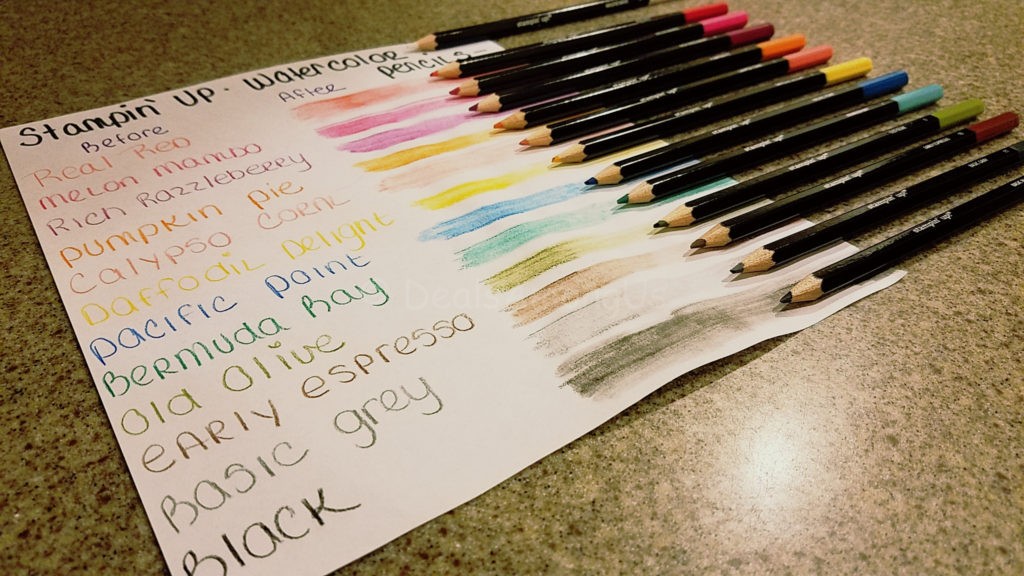 Stampin' Up. Watercolor
pencils
Before
After
Real Red
melon mambo
Rich Razzleberry
pumpkin pie
Calypso Coral
Daffodil Delight
pacific point
Bermuda Bay
Old Olive
EARLY espresso
Basic grey
Black